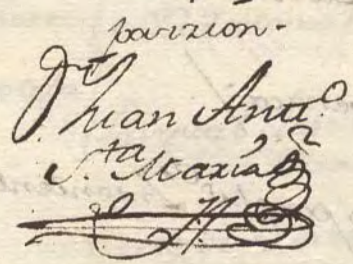 parizion.
Dn
Juan Anto
Sta Maria